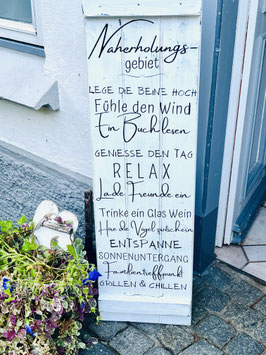 Naherholungs-
gebiet
LEGE DIE BEINE HOCH
Fühle den Wind
Ein Buch lesen
GENIESSE DEN TAG
RELAX
Lade Freunde ein
Trinke ein Glas Wein
Höre die Vögel zwitschern
ENTSPANNE
SONNENUNTERGANG
Familientreffpunkt
GRILLEN & CHILLEN